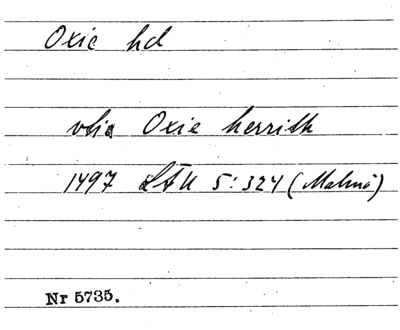 Oxie hd
vtj Oxie herrith
1497 LÅU 5:324 (Malmö)
Nr 5735.